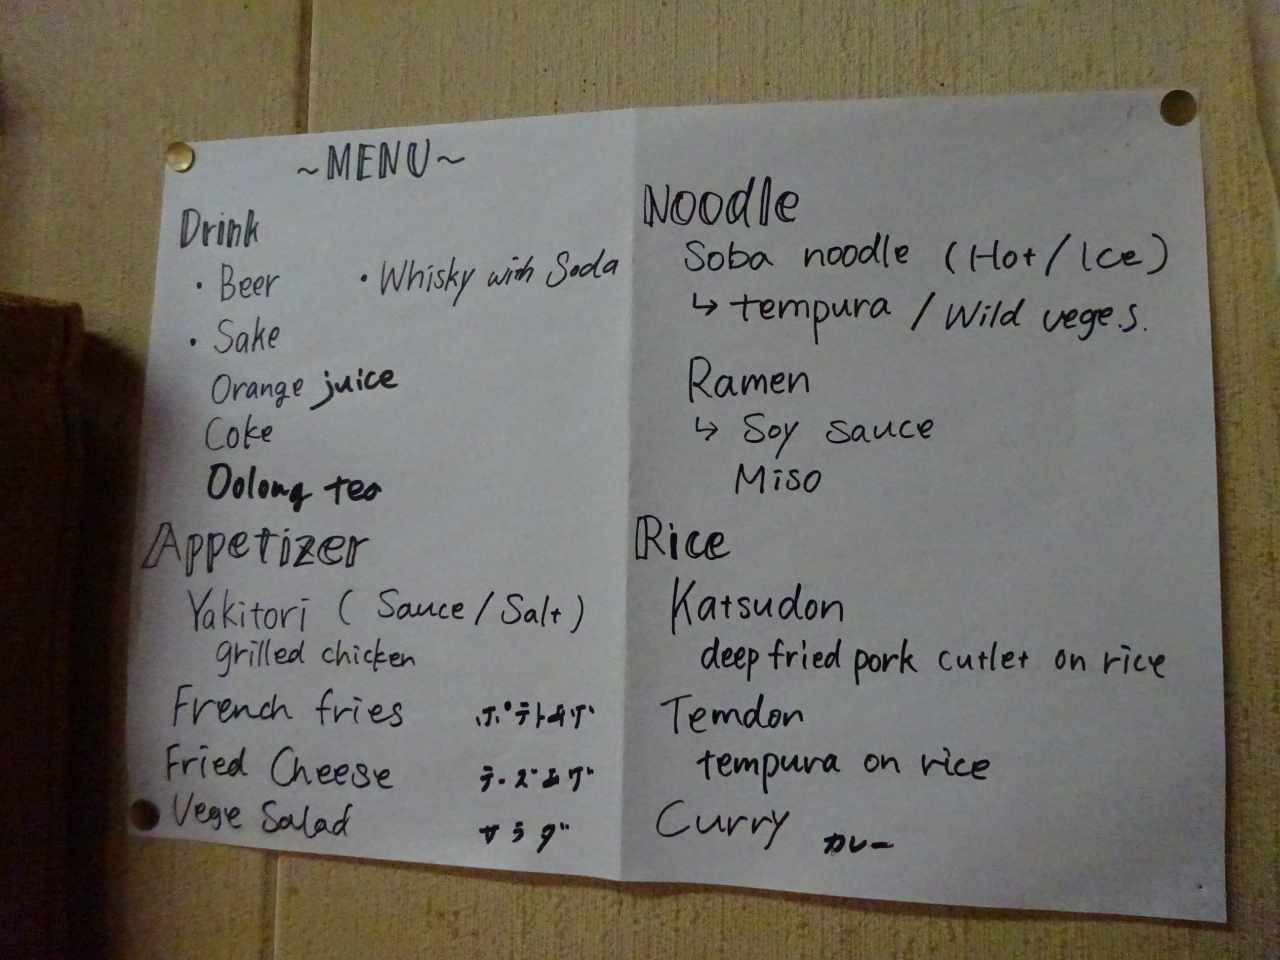 ~MENU~
Drink
・Beer
・Whisky with Soda
・Sake
Orange juice
Coke
Oolong tea
Appetizer
Yakitori ( Sauce / Salt )
grilled chicken
French fries ポテトあげ
Fried Cheese チーズあげ
Vege Salad サラダ
Noodle
Soba noodle (Hot / Ice)
↳ tempura / Wild veges.
Ramen
↳ Soy sauce
Miso
Rice
Katsudon
deep fried pork cutlet on rice
Temdon
tempura on rice
Curry カレー